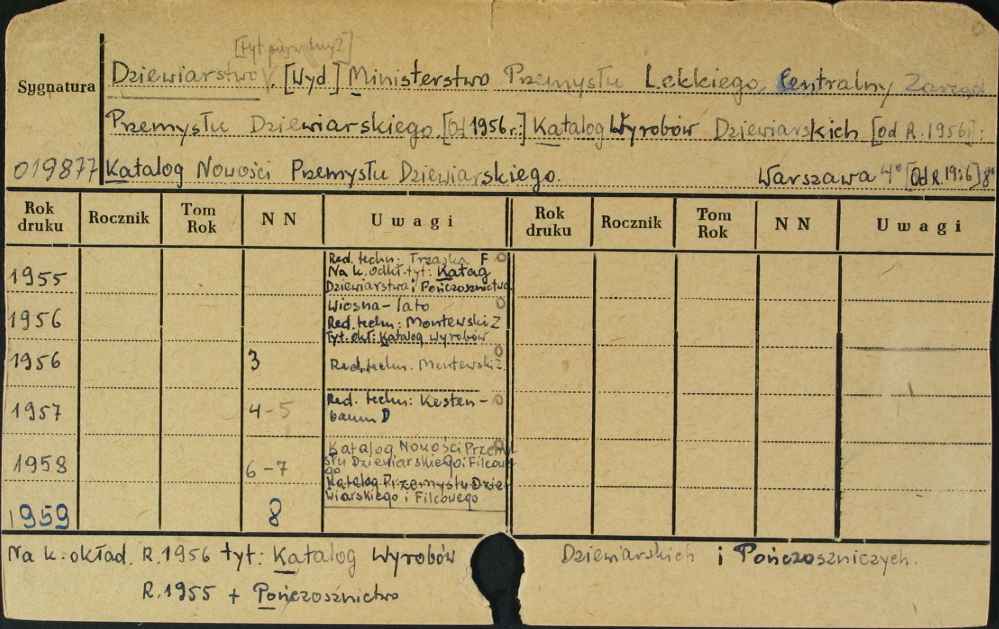 [tyt. pojedynczy?]
Dziewiarstwo. [Wyd.] Ministerstwo Przemysłu Lekkiego, Centralny Zarząd
Sygnatura
Przemysłu Dziewiarskiego. [Od 1956 r.:] Katalog Wyrobów Dziewiarskich [od R. 1956]:
019877 Katalog Nowości Przemysłu Dziewiarskiego. Warszawa 4° [Od R. 1956] 8°
Rok druku Rocznik Tom Rok N N Uwagi Rok druku Rocznik Tom Rok N N Uwagi
1955 Red. techn: Trzaska F 0
Na k. odkł. tyt: Katag
Dziewiarstwa i Pończosznictwa
1956 Wiosna-lato 0
Red. techn: Montewski Z
Tyt. okł: Katalog wyrobów
1956 3 Red. techn. Montewski Z. 0
1957 4-5 Red. techn: Kesten- 0
baum D
1958 6-7 Katalog Nowości Przemy
słu Dziewiarskiego i Filcowe
go
Katalog Przemysłu Dzie
wiarskiego i Filcowego
1959 8
Na k. okład. R. 1956 tyt: Katalog Wyrobów Dziewiarskich i Pończoszniczych.
R. 1955 + Pończosznictwo